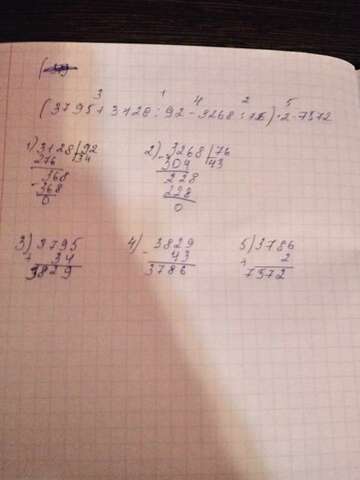 3 1 4 2 5
(3795+3128:92-3268:76)·2=7572
1) 3128|92 2) 3268|76
276 34 304 43
368 228
368 228
0 0
3) 3795 4) 3829 5) 3786
+ 34 - 43 2
3829 3786 7572